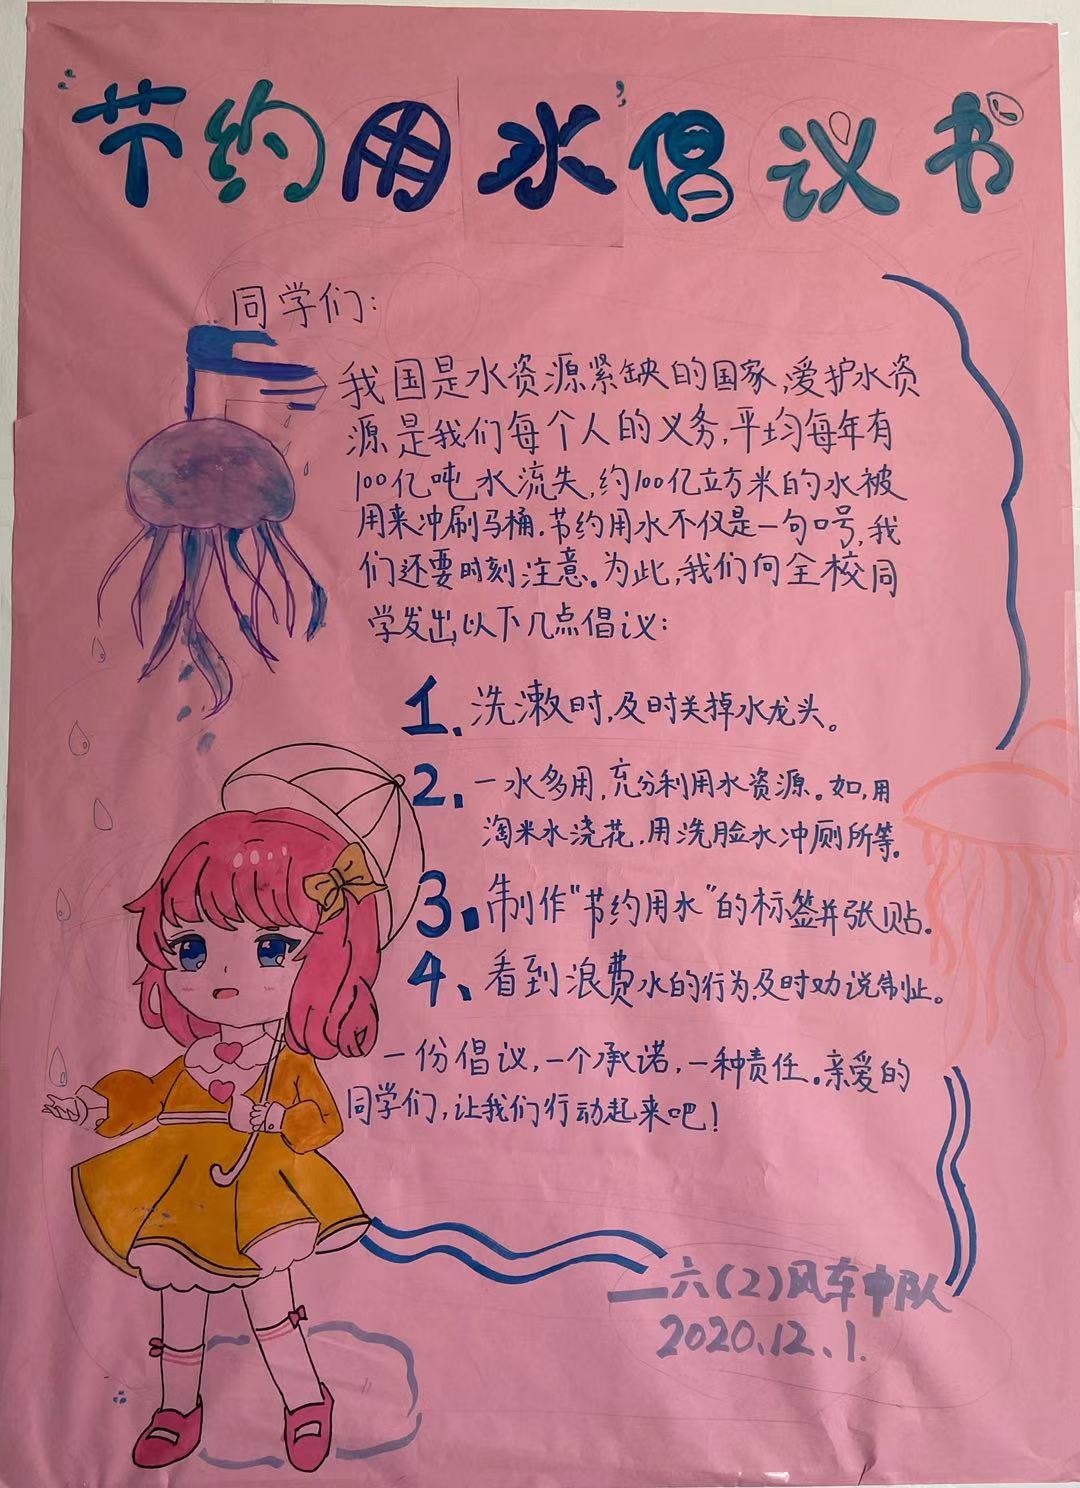 “节约用水”倡议书
同学们：
我国是水资源紧缺的国家，爱护水资
源是我们每个人的义务，平均每年有
100亿吨水流失，约100亿立方米的水被
用来冲刷马桶。节约用水不仅是一句口号，我
们还要时刻注意。为此，我们向全校同
学发出以下几点倡议：
1.洗漱时，及时关掉水龙头。
2.一水多用，充分利用水资源。如，用
淘米水浇花，用洗脸水冲厕所等。
3.制作“节约用水”的标签并张贴。
4、看到浪费水的行为及时劝说制止。
一份倡议，一个承诺，一种责任。亲爱的
同学们，让我们行动起来吧！
—六(2)风车中队
2020.12.1.